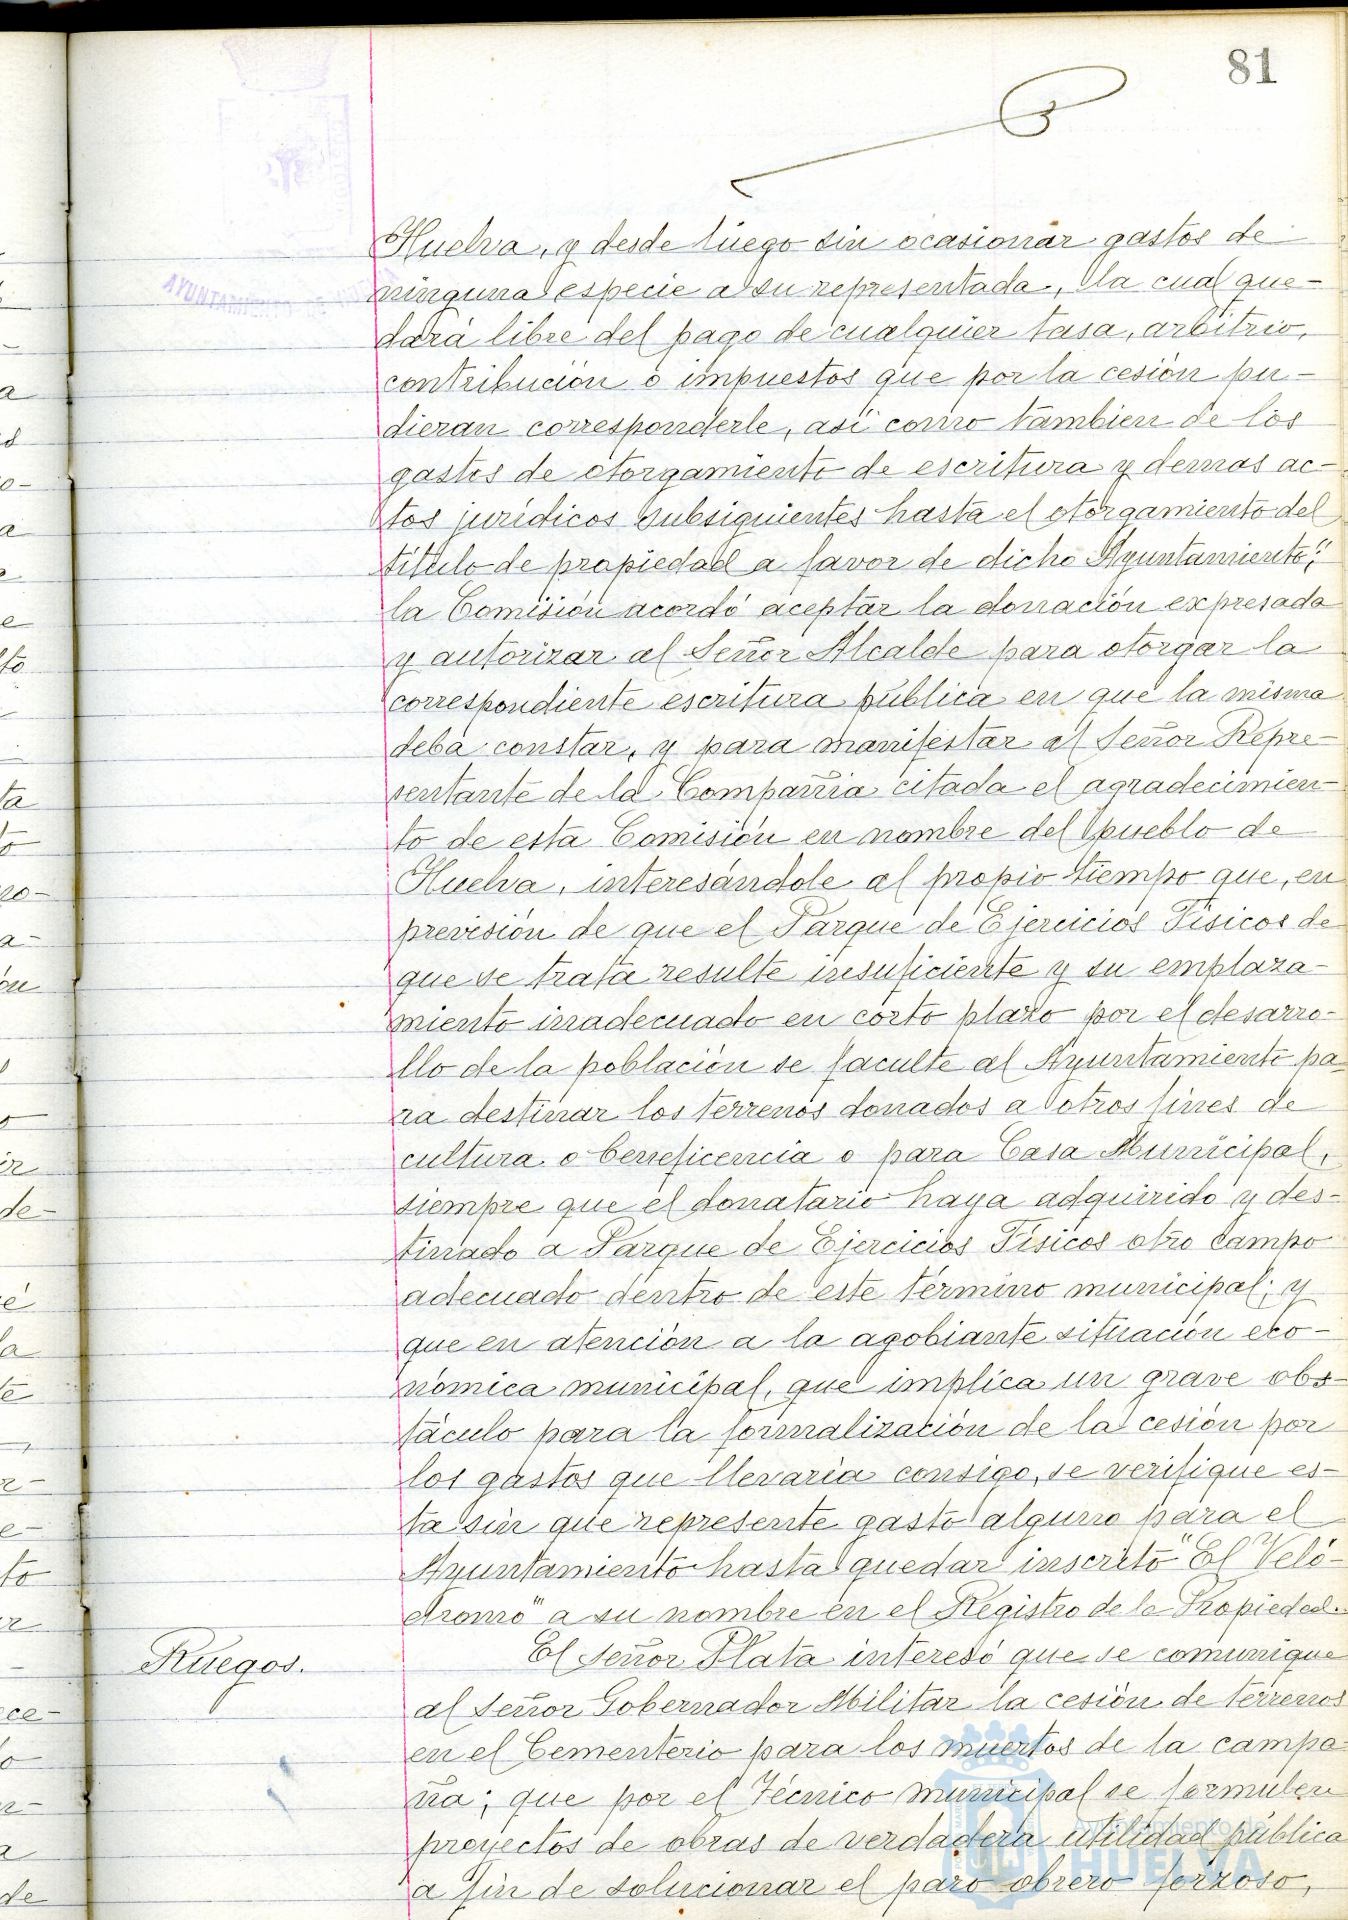 81
AYUNTAMIENTO DE
Huelva, y desde luego sin ocasionar gastos de
ninguna especie a su representada, la cual que-
dará libre del pago de cualquier tasa, arbitrio,
contribución o impuestos que por la cesión pu-
dieran corresponderle, así como tambien de los
gastos de otorgamiento de escritura y demas ac-
tos jurídicos subsiguientes hasta el otorgamiento del
título de propiedad a favor de dicho Ayuntamiento";
la Comisión acordó aceptar la donación expresada
y autorizar al Señor Alcalde para otorgar la
correspondiente escritura pública en que la misma
deba constar, y para manifestar al Señor Repre-
sentante de la Compañia citada el agradecimien-
to de esta Comisión en nombre del pueblo de
Huelva, interesándole al propio tiempo que, en
previsión de que el Parque de Ejercicios Físicos de
que se trata resulte insuficiente y su emplaza-
miento inadecuado en corto plazo por el desarro-
llo de la población se faculte al Ayuntamiento pa-
ra destinar los terrenos donados a otros fines de
cultura o beneficencia o para Casa Municipal,
siempre que el donatario haya adquirido y des-
tinado a Parque de Ejercicios Físicos otro campo
adecuado dentro de este término municipal; y
que en atención a la agobiante situación eco-
nómica municipal, que implica un grave obs-
táculo para la formalización de la cesión por
los gastos que llevaría consigo, se verifique es-
ta sin que represente gasto alguno para el
Ayuntamiento hasta quedar inscrito "El Veló-
dromo" a su nombre en el Registro de la Propiedad.
Ruegos.
El señor Plata interesó que se comunique
al señor Gobernador Militar la cesión de terrenos
en el Cementerio para los muertos de la campa-
ña; que por el Técnico municipal se formulen
proyectos de obras de verdadera utilidad pública
a fin de solucionar el paro obrero forzoso,
Ayuntamiento de
HUELVA